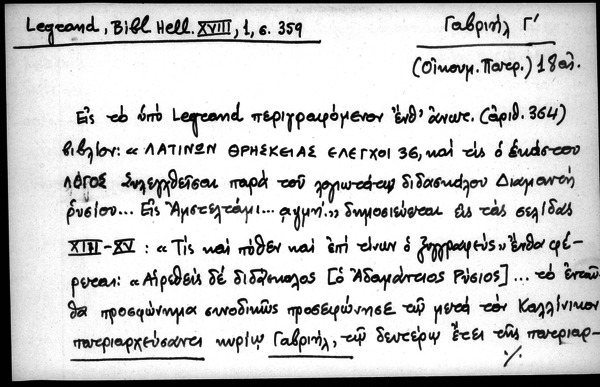 Legrand, Bibl. Hell. XVIII, 1, σ. 359
Γαβριήλ Γ'
(Οἰκουμ. Πατρ.) 18 αἰ.
Εἰς τὸ ὑπὸ Legrand περιγραφόμενον ἔνθ' ἀνωτ. (ἀριθ. 364)
βιβλίον: « ΛΑΤΙΝΩΝ ΘΡΗΣΚΕΙΑΣ ΕΛΕΓΧΟΙ 36, καὶ τίς ὁ ἑκάστου
ΛΟΓΟΣ Συλλεχθεῖσαι παρὰ τοῦ λογιωτάτου διδασκάλου Διαμαντῆ
Ρυσίου... Εἰς Ἀμστελτάμι... αψμη'.» δημοσιεύεται εἰς τὰς σελίδας
XIII-XV : «Τίς καὶ πόθεν καὶ ἐπὶ τίνων ὁ ξυγγραφεὺς» ἔνθα φέ-
ρεται: « Αἱρεθεὶς δὲ διδάσκαλος [ὁ Ἀδαμάντιος Ρύσιος] ... τὸ ἐνταῦ-
θα προσφώνημα συνοδικῶς προσεφώνησε τῷ μετὰ τὸν Καλλίνικον
πατριαρχεύσαντι κυρίῳ Γαβριήλ, τῷ δευτέρῳ ἔτει τῆς πατριαρ-
./.